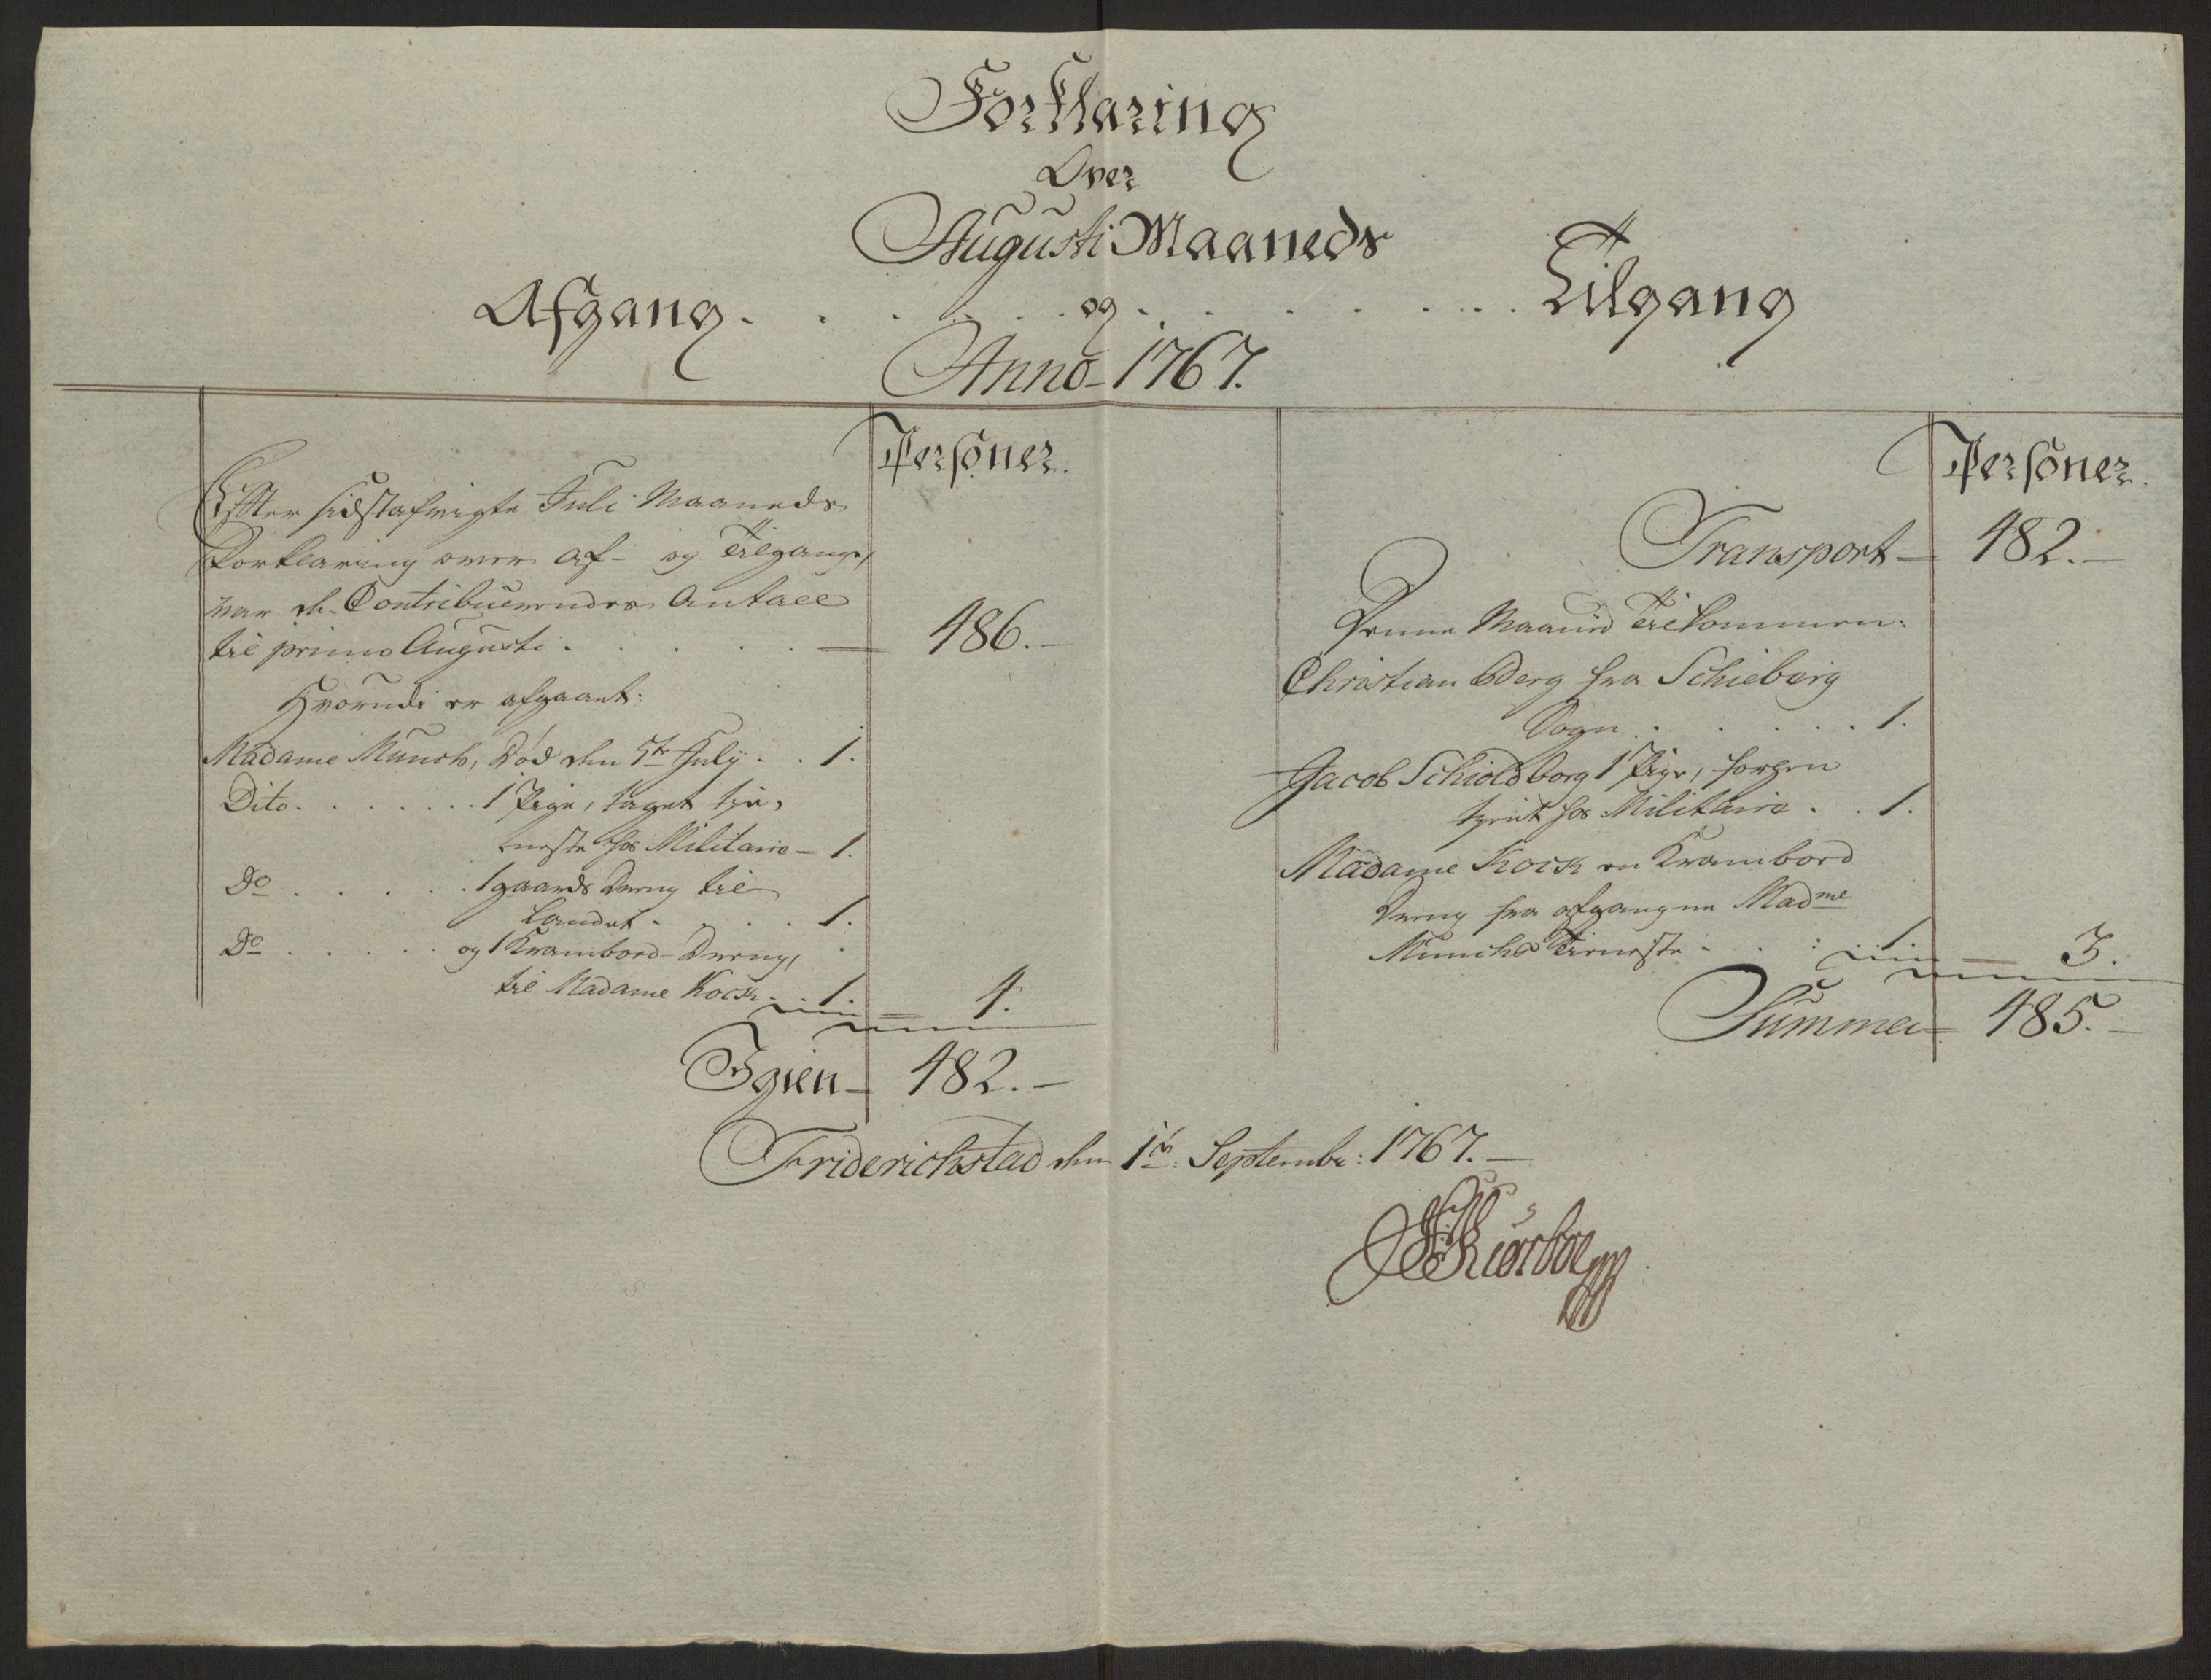 Forklaring
Over
Augusti Maaneds
Afgang . . . . . og . . . . . . . Tilgang
Anno 1767.
Personer.
Efter sidstafvigte Juli Maaneds
Forklaring over Af- og Tilgang,
var de Contribuerendes Antall
til primo Augusti . . . . . — 486.—
Hvorudi er afgaaet:
Madame Munch, Död den 5te July . . 1.
Dito . . . . . . 1 Pige, taget tie,
neste hos Militarie — 1.
Do . . . . . . 1 gaards Dreng til
Landet . . . . . 1.
Do . . . . . og 1 Krambord-Dreng,
til Madame Kock . . 1. = 4.
Igien — 482.—
Personer.
Transport — 482.—
Denne Maaned Tilkommen:
Christian Berg fra Schieberg
Sogn . . . . . . 1.
Jacob Schioldborg 1 Pige, forhen
tient hos Militairé . . 1.
Madame Kock en Krambord
Dreng fra afgangne Madme
Munchs Tieneste . . . 1. = 3.
Summa = 485.—
Friderichstad den 1te Septembr: 1767.—